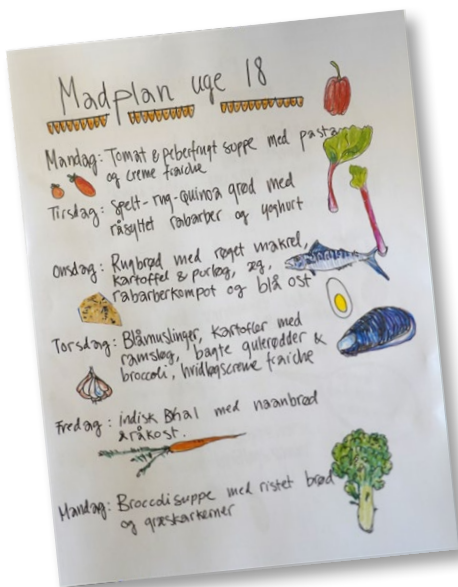 Madplan uge 18
Mandag: Tomat & peberfrugt suppe med pasta
og creme fraiche
Tirsdag: Spelt-rug-Quinoa grød med
råsyltet rabarber og yoghurt
Onsdag: Rugbrød med røget makrel,
kartoffel & purløg, æg,
rabarberkompot og blå ost
Torsdag: Blåmuslinger, kartofler med
ramsløg, bagte gulerødder &
broccoli, hvidløgscreme fraiche
Fredag: indisk Dhal med naanbrød
& råkost.
Mandag: Broccolisuppe med ristet brød
og græskarkerner